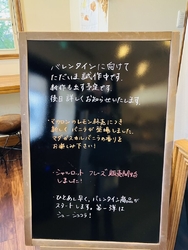 バレンタインに向けて
ただいま試作中です。
新作も出す予定です。
後日詳しくおしらせいたします
・マカロンのレモン終売につき
新しくバニラが登場しました。
マダガスカルバニラの香りを
お楽しみ下さい!
・シャルロット フレーズ販売開始
しました!
・ひとあし早く、バレンタイン商品が
スタートします。第一弾は
シュー ショコラ!